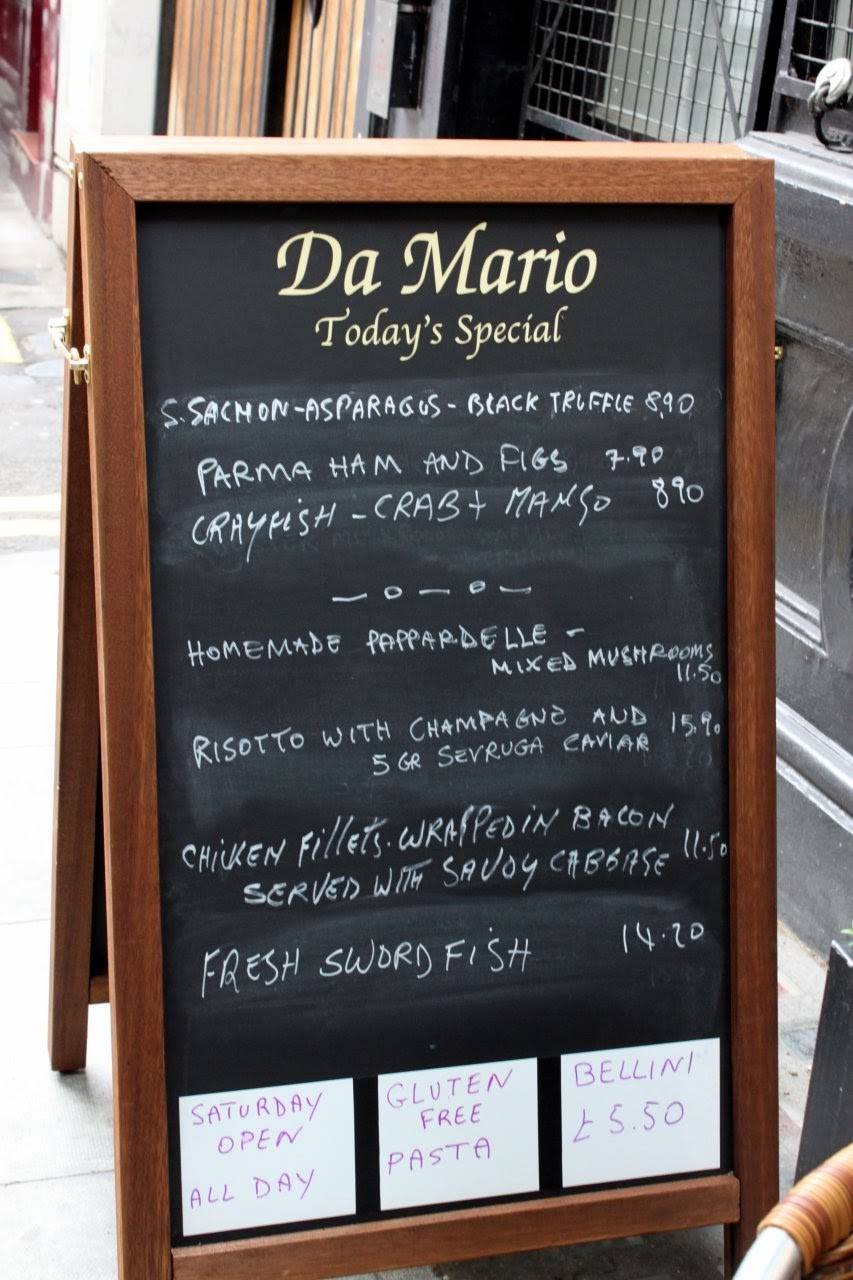 Da Mario
Today's Special
S. SACMON-ASPARAGUS-BLACK TRUFFLE 8,90
PARMA HAM AND FIGS 7.90
CRAYFISH - CRAB + MANGO 890
HOMEMADE PAPPARDELLE -
MIXED MUSHROOMS
11.50
RISOTTO WITH CHAMPAGNE AND 15.90
5 GR SEVRUGA CAVIAR
CHICKEN FILLETS. WRAPPED IN BACON
SERVED WITH SAVOY CABBAGE 11.50
FRESH SWORDFISH 14.20
SATURDAY
OPEN
ALL DAY
GLUTEN
FREE
PASTA
BELLINI
£5.50